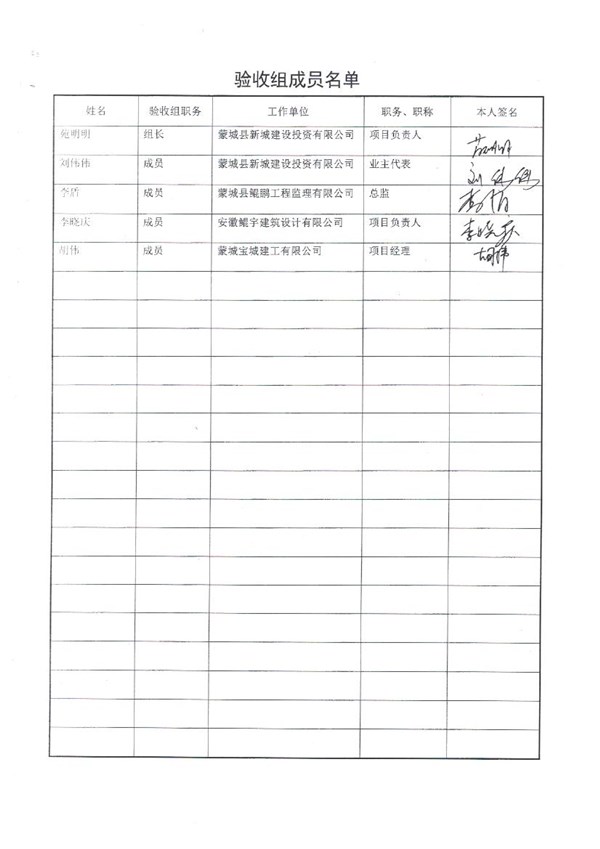 验收组成员名单
姓名 验收组职务 工作单位 职务、职称 本人签名
苑明明 组长 蒙城县新城建设投资有限公司 项目负责人
刘伟伟 成员 蒙城县新城建设投资有限公司 业主代表 刘伟伟
李盾 成员 蒙城县鲲鹏工程监理有限公司 总监 李盾
李晓庆 成员 安徽鲲宇建筑设计有限公司 项目负责人 李晓庆
胡伟 成员 蒙城宝城建工有限公司 项目经理 胡伟